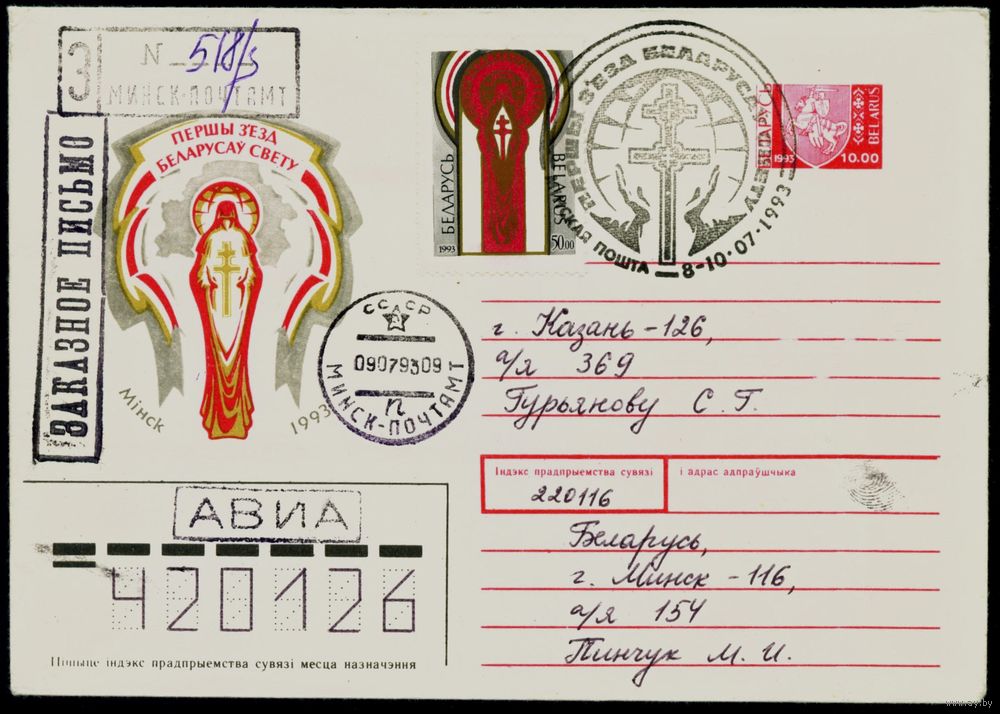 З
N 518/з
МИНСК-ПОЧТАМТ
ЗАКАЗНОЕ ПИСЬМО
ПЕРШЫ З'ЕЗД
БЕЛАРУСАЎ СВЕТУ
Мінск
1993
БЕЛАРУСЬ
BELARUS
1993
50.00
ПЕРШЫ З'ЕЗД БЕЛАРУСАЎ СВЕТУ
8-10·07·1993
ПОШТА
БЕЛАРУСЬ
BELARUS
1993
10.00
СССР
09079309
МИНСК-ПОЧТАМТ
г. Казань-126,
а/я 369
Гурьянову С. Г.
Індэкс прадпрыемства сувязі
і адрас адпраўшчыка
220116
Беларусь,
г. Минск-116,
а/я 154
Пинчук М. И.
АВИА
420126
Пішыце індэкс прадпрыемства сувязі месца назначэння
www.ay.by